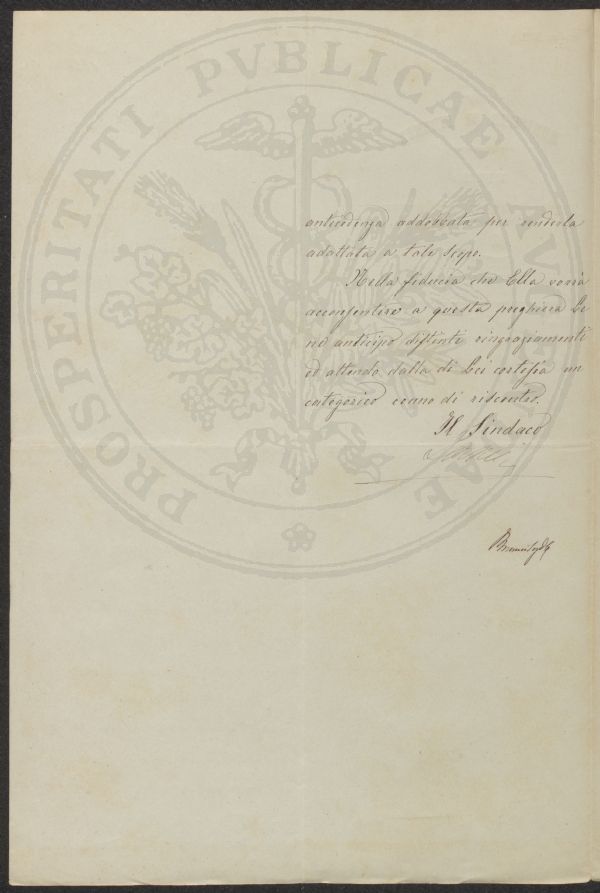 PROSPERITATI PVBLICAE AVCTAE
antecedenza addobbata per renderla
adattata a tale scopo.
Nella fiducia che Ella vorrà
acconsentire a questa preghiera Le
ne anticipo distinti ringraziamenti
ed attendo dalla di Lei cortesia un
categorico cenno di riscontro.
Il Sindaco